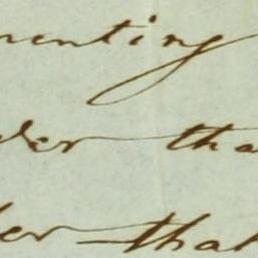 menting
der tha
der that